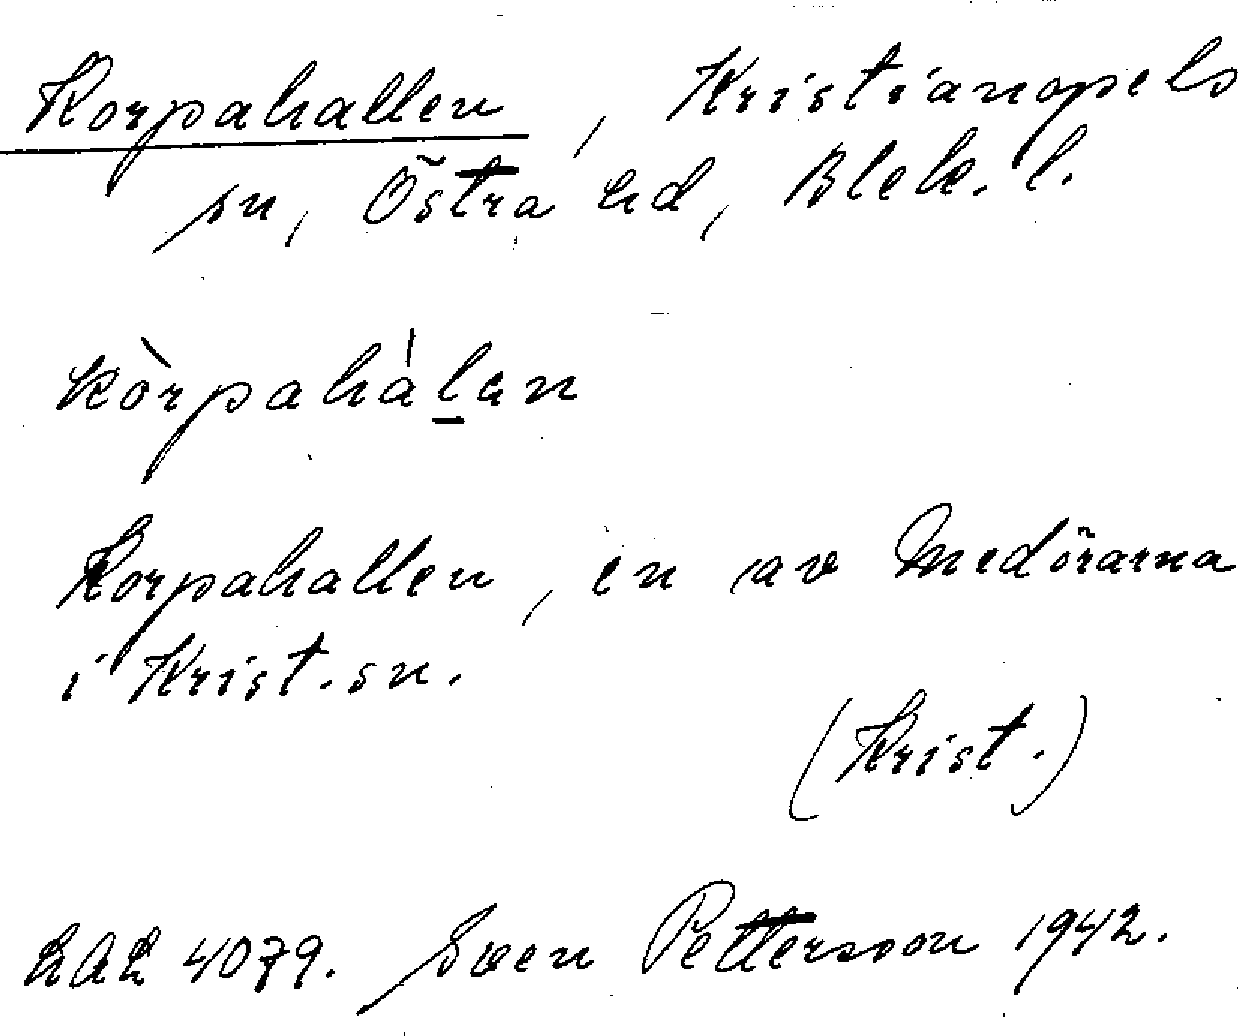 Korpahallen, Kristianopels
sn, Östra hd, Blek. l.
kòrpahàl̲an
Korpahallen, en av Medörarna
i Krist. sn.
(Krist.)
LAL 4079. Sven Pettersson 1942.